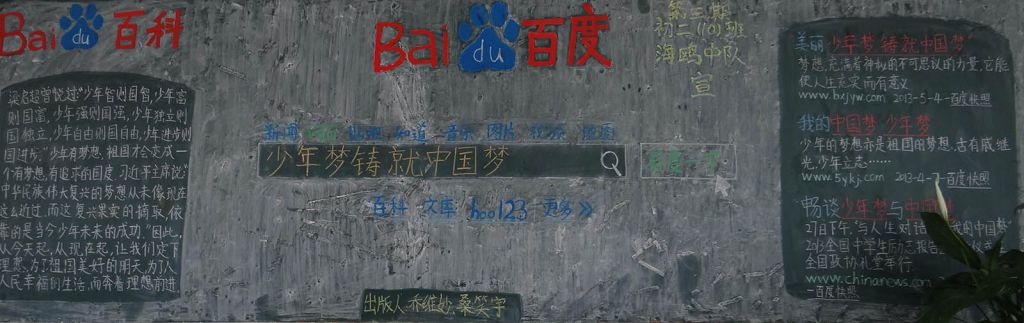 Bai du 百科
梁启超曾说过"少年智则国智,少年富
则国富,少年强则国强,少年独立则
国独立,少年自由则国自由,少年进步则
国进步。"少年有梦想,祖国才会变成一
个有梦想,有追求的国度,习近平主席说:"
中华民族伟大复兴的梦想从未像现在
这么近过,而这复兴果实的摘取,依
靠的是当今少年未来的成功。"因此,
从今天起,从现在起,让我们定下
理想,为了祖国美好的明天,为了人
人民幸福的生活,而奔着理想前进
Bai du 百度
第三期
初二(10)班
海鸥中队
宣
新闻 网页 贴吧 知道 音乐 图片 视频 地图
少年梦铸就中国梦
百度一下
百科 文库 hao123 更多>>
出版人:乔维妙 桑笑宇
美丽少年梦铸就中国梦"
梦想,充满着神秘的不可思议的力量,它能
使人生充实而有意义
www.bxjyw.com 2013-5-4-百度快照
我的中国梦 少年梦
少年的梦想亦是祖国的梦想,古有戚继
光,少年立志……
www.5ykj.com 2013-4-7-百度快照
畅谈少年梦与中国梦
27日下午,"与人生对话 我的中国梦
2013全国中学生励志报告
全国政协礼堂举行
www.chinanews.com
-百度快照